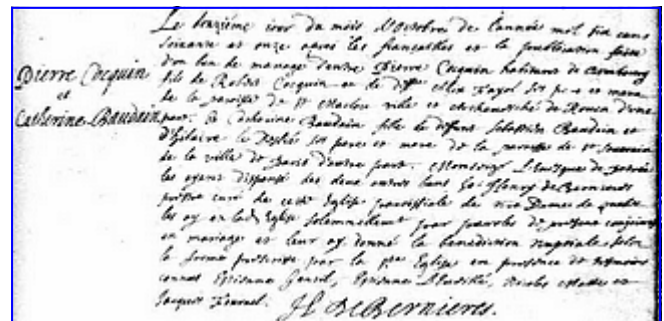 Le douzième jour du mois d'Octobre de l'année mil six cens
soixante et onze après les fiançailles et la publication faite
d'un ban de mariage d'entre Pierre Cocquin habitant de
fils de Robert Cocquin et de deffte Ses pere et mere
de la paroisse de St Maclou ville et archevesché de Rouen d'une
part. Et Catherine Baudain fille de deffunt Sebastien Baudain et
d'Hilaire ses peres et mere de la paroisse de St
de la ville de Paris d'autre part. Monseigr L'Evesque de
les ayant dispensé des deux autres bans Je Henry de Bernieres
prestre curé de cette Eglise paroissiale de nre Dame de Quebec
les ay en lad. Eglise solemnellement par paroles de present conjoint
en mariage et leur ay donné la benediction nuptiale selon
la forme prescrite par la Ste Eglise en presence de temoins
connus Estienne Estienne Nicolas et
Jacques Fournel. H. DeBernieres.
Pierre Cocquin
et
Catherine Baudain